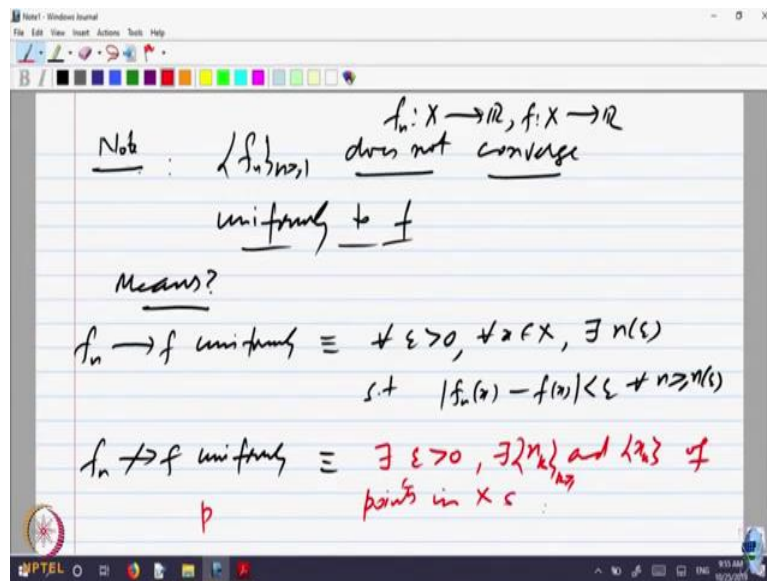 Note1 - Windows Journal
File Edit View Insert Actions Tools Help
B I
fₙ: X → ℝ, f: X → ℝ
Note : {fₙ}ₙ≥₁ does not converge
uniformly to f
Means?
fₙ → f uniformly ≡ ∀ ε > 0, ∀ x ∈ X, ∃ n(ε)
s.t |fₙ(x) − f(x)| < ε ∀ n ≥ n(ε)
fₙ ↛ f uniformly ≡ ∃ ε > 0, ∃ {nₖ}ₖ≥₁ and {xₖ} of
points in X s
p
NPTEL
ENG
9:55 AM